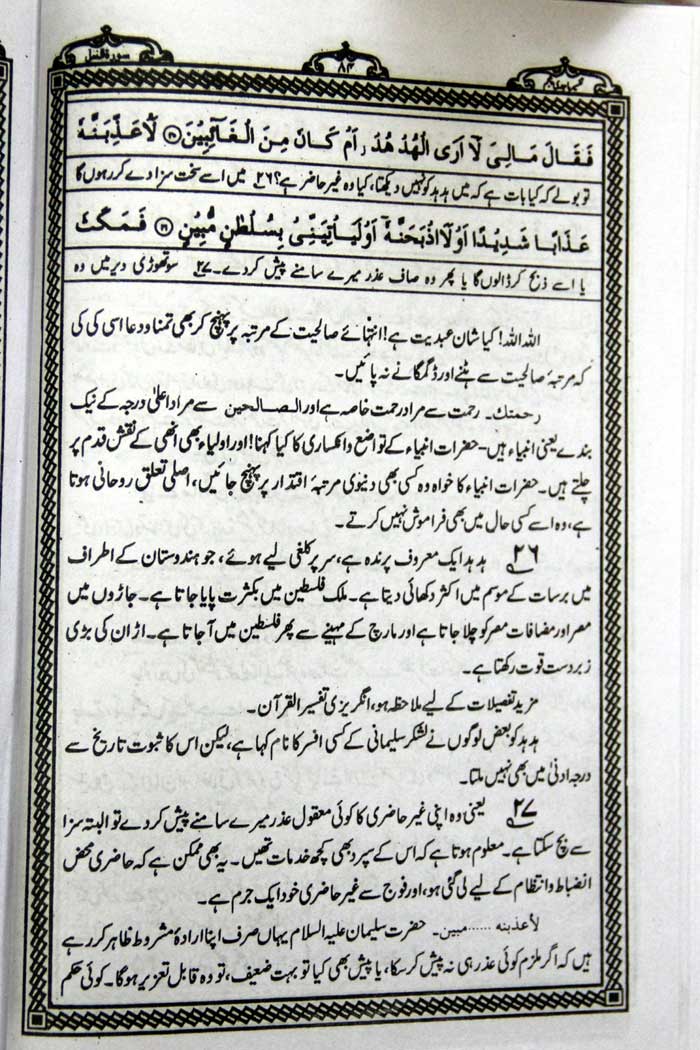 سورۃ النمل
۸۴
فَقَالَ مَالِیَ لَاۤ اَرَی الْهُدْهُدَ ۖ اَمْ كَانَ مِنَ الْغَآئِبِیْنَ ﴿۲۰﴾ لَاُعَذِّبَنَّهٗ
تو بولے کہ کیا بات ہے کہ میں ہدہد کو نہیں دیکھتا، کیا وہ غیر حاضر ہے؟ ۲۶ میں اسے سخت سزا دے کر رہوں گا
عَذَابًا شَدِیْدًا اَوْ لَاَاذْبَحَنَّهٗۤ اَوْ لَیَاْتِیَنِّیْ بِسُلْطٰنٍ مُّبِیْنٍ ﴿۲۱﴾ فَمَكَثَ
یا اسے ذبح کر ڈالوں گا یا پھر وہ صاف عذر میرے سامنے پیش کر دے۔ ۲۷ سو تھوڑی دیر میں وہ
اللہ اللہ! کیا شان عبدیت ہے! انتہائے صالحیت کے مرتبہ پر پہنچ کر بھی تمنا و دعا اسی کی کی
کہ مرتبۂ صالحیت سے ہٹنے اور ڈگمگانے نہ پائیں۔
رحمتك۔ رحمت سے مراد رحمت خاصہ ہے اور الصالحین سے مراد اعلیٰ درجہ کے نیک
بندے یعنی انبیاء ہیں۔ حضرات انبیاء کے تواضع و انکساری کا کیا کہنا! اور اولیاء بھی انھی کے نقش قدم پر
چلتے ہیں۔ حضرات انبیاء کا خواہ وہ کسی بھی دنیوی مرتبۂ اقتدار پر پہنچ جائیں، اصلی تعلق روحانی ہوتا
ہے، وہ اسے کسی حال میں بھی فراموش نہیں کرتے۔
۲۶ ہدہد ایک معروف پرندہ ہے، سر پر کلغی لیے ہوئے، جو ہندوستان کے اطراف
میں برسات کے موسم میں اکثر دکھائی دیتا ہے۔ ملک فلسطین میں بکثرت پایا جاتا ہے۔ جاڑوں میں
مصر اور مضافات مصر کو چلا جاتا ہے اور مارچ کے مہینے سے پھر فلسطین میں آ جاتا ہے۔ اڑان کی بڑی
زبردست قوت رکھتا ہے۔
مزید تفصیلات کے لیے ملاحظہ ہو، انگریزی تفسیر القرآن۔
ہدہد کو بعض لوگوں نے لشکر سلیمانی کے کسی افسر کا نام کہا ہے، لیکن اس کا ثبوت تاریخ سے
درجہ ادنیٰ میں بھی نہیں ملتا۔
۲۷ یعنی وہ اپنی غیر حاضری کا کوئی معقول عذر میرے سامنے پیش کر دے تو البتہ سزا
سے بچ سکتا ہے۔ معلوم ہوتا ہے کہ اس کے سپرد بھی کچھ خدمات تھیں۔ یہ بھی ممکن ہے کہ حاضری محض
انضباط و انتظام کے لیے لی گئی ہو، اور فوج سے غیر حاضری خود ایک جرم ہے۔
لأعذبنه ...... مبین۔ حضرت سلیمان علیہ السلام یہاں صرف اپنا ارادۂ مشروط ظاہر کر رہے
ہیں کہ اگر ملزم کوئی عذر ہی نہ پیش کر سکا، یا پیش بھی کیا تو بہت ضعیف، تو وہ قابل تعزیر ہوگا۔ کوئی حکم